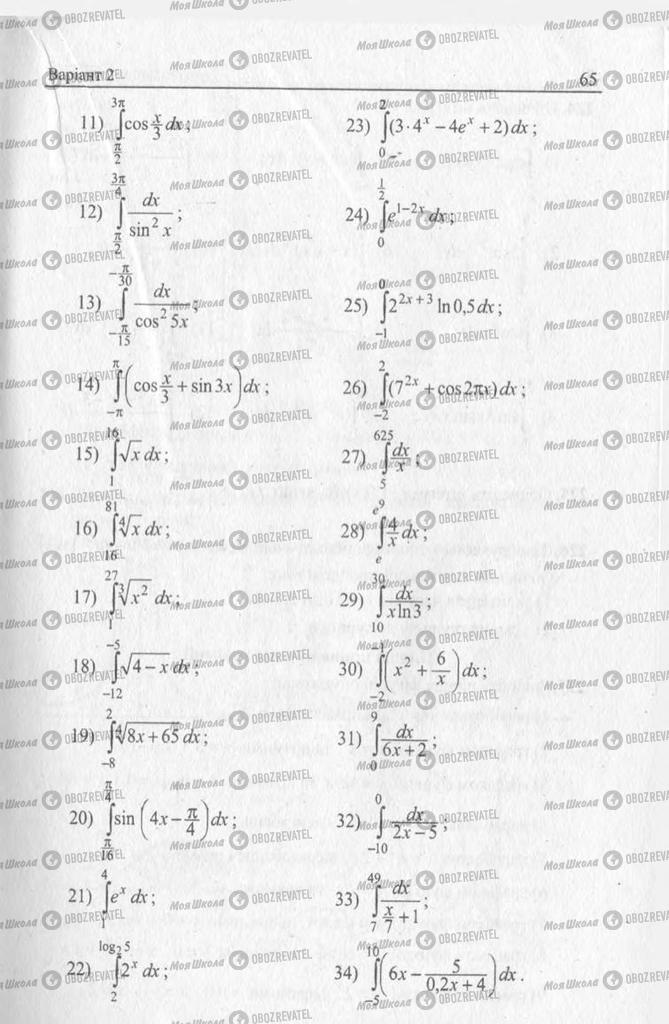 Варіант 2 65
11) ∫_{π/2}^{3π} cos x/3 dx;
12) ∫_{π/2}^{3π/4} dx/sin² x;
13) ∫_{-π/15}^{-π/30} dx/cos² 5x;
14) ∫_{-π}^{π} (cos x/3 + sin 3x) dx;
15) ∫_{1}^{16} √x dx;
16) ∫_{16}^{81} ⁴√x dx;
17) ∫_{1}^{27} ³√x² dx;
18) ∫_{-12}^{-5} √(4 − x) dx;
19) ∫_{-8}^{2} ⁴√(8x + 65) dx;
20) ∫_{π/16}^{π/4} sin (4x − π/4) dx;
21) ∫_{1}^{4} eˣ dx;
22) ∫_{2}^{log₂ 5} 2ˣ dx;
23) ∫_{0}^{2} (3 · 4ˣ − 4eˣ + 2) dx;
24) ∫_{0}^{1/2} e^{1−2x} dx;
25) ∫_{-1}^{0} 2^{2x+3} ln 0,5 dx;
26) ∫_{-2}^{2} (7^{2x} + cos 2πx) dx;
27) ∫_{5}^{625} dx/x;
28) ∫_{e}^{e⁹} 4/x dx;
29) ∫_{10}^{30} dx/(x ln 3);
30) ∫_{-2}^{-1} (x² + 6/x) dx;
31) ∫_{0}^{9} dx/(6x + 2);
32) ∫_{-10}^{0} dx/(2x − 5);
33) ∫_{7}^{49} dx/(x/7 + 1);
34) ∫_{-5}^{10} (6x − 5/(0,2x + 4)) dx.
МояШкола OBOZREVATEL